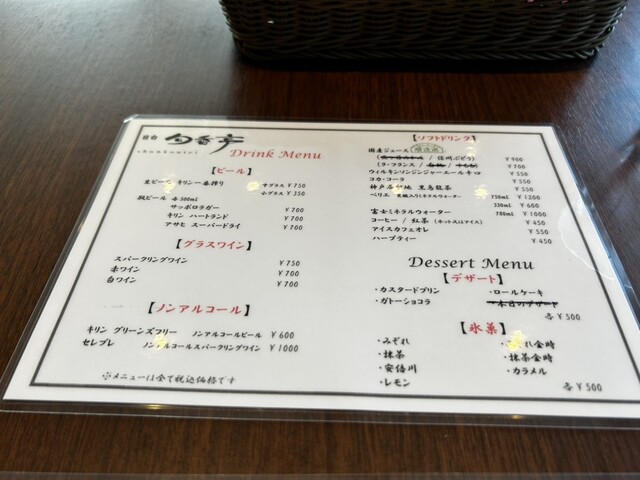 目白 旬香亭
shunkoutei
Drink Menu
【ビール】
生ビール キリン一番搾り 中グラス ¥750
小グラス ¥350
瓶ビール 各500ml
サッポロラガー ¥700
キリン ハートランド ¥700
アサヒ スーパードライ ¥700
【グラスワイン】
スパークリングワイン ¥750
赤ワイン ¥700
白ワイン ¥700
【ノンアルコール】
キリン グリーンズフリー ノンアルコールビール ¥600
セレブレ ノンアルコールスパークリングワイン ¥1000
※メニューは全て税込価格です
【ソフトドリンク】
国産ジュース
/ 信州ぶどう) ¥900
(ラ・フランス / / ) ¥700
ウィルキンソンジンジャーエール辛口 ¥550
コカ・コーラ ¥550
神戸居留地 黒烏龍茶 ¥550
ペリエ 炭酸入りミネラルウォーター 750ml ¥1200
330ml ¥600
富士ミネラルウォーター 780ml ¥1000
コーヒー / 紅茶 (ホット又はアイス) ¥450
アイスカフェオレ ¥550
ハーブティー ¥450
Dessert Menu
【デザート】
・カスタードプリン ・ロールケーキ
・ガトーショコラ ・本日のデザート
各 ¥500
【氷菓】
・みぞれ 金時
・抹茶 ・抹茶金時
・安倍川 ・カラメル
・レモン
各 ¥500